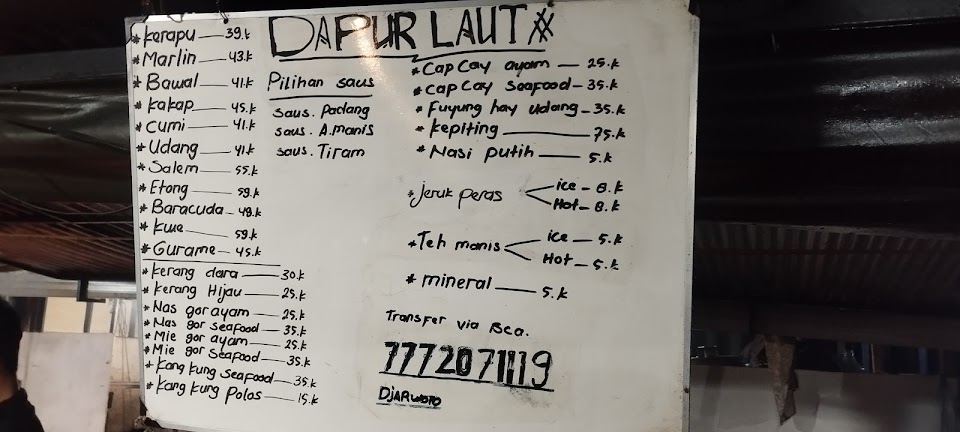 DAPUR LAUT
* Kerapu — 39.k
* Marlin — 43.k
* Bawal — 41.k
* Kakap — 45.k
* Cumi — 41.k
* Udang — 41.k
* Salem — 55.k
* Etong — 59.k
* Baracuda — 49.k
* Kwe — 59.k
* Gurame — 45.k
* Kerang dara — 30.k
* Kerang Hijau — 25.k
* Nas gor ayam — 25.k
* Nas gor Seafood — 35.k
* Mie gor ayam — 25.k
* Mie gor Seafood — 35.k
* Kang kung Seafood — 35.k
* Kang kung Polos — 15.k
Pilihan saus
saus. Padang
saus. A.manis
saus. Tiram
* Cap Cay ayam — 25.k
* Cap Cay Seafood — 35.k
* Fuyung hay udang — 35.k
* Kepiting — 75.k
* Nasi putih — 5.k
* Jeruk peras
ice — 8.k
Hot — 8.k
* Teh manis
ice — 5.k
Hot — 5.k
* mineral — 5.k
Transfer via Bca.
7772071119
DJARWOTO